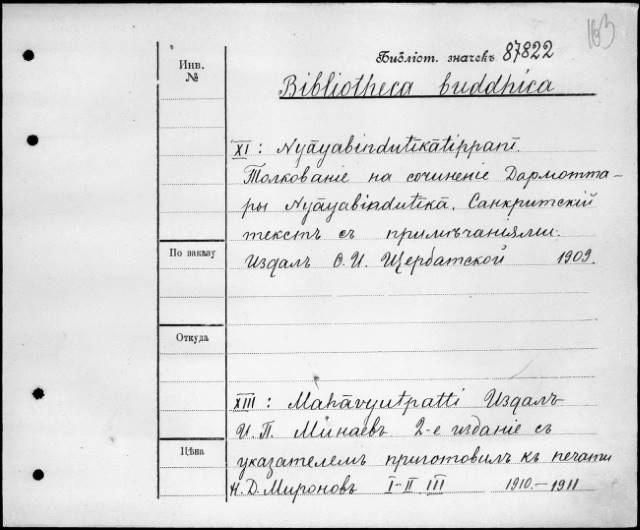 163
Библіот. значекъ 87822
Инв.
№
Bibliotheca buddhica
XI: Nyāyabindutīkātippanī.
Толкованіе на сочиненіе Дармотта-
ры Nyāyabindutīkā. Санкритскій
текстъ съ примѣчаніями.
Издалъ Ѳ. И. Щербатской 1909.
По заказу
Откуда
XIII: Mahāvyutpatti Издалъ
И. П. Минаевъ 2-е изданіе съ
Цѣна
указателемъ приготовилъ къ печати
Н. Д. Мироновъ I-II III 1910.-1911